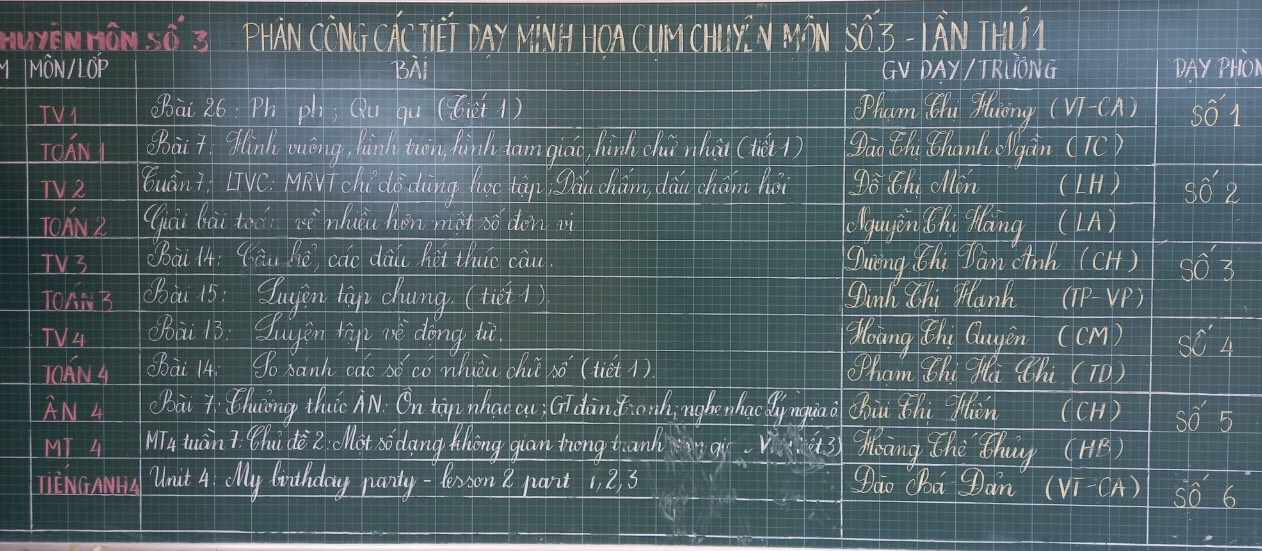 HUYÊN MÔN SỐ 3 PHÂN CÔNG CÁC TIẾT DẠY MINH HỌA CỤM CHUYÊN MÔN SỐ 3 - LẦN THỨ 1
M MÔN/LỚP BÀI GV DẠY/TRƯỜNG DẠY PHÒN
TV1 Bài 26: Ph ph; Qu qu (Tiết 1) Phạm Thu Hường (VT-CA) SỐ 1
TOÁN 1 Bài 7: Hình vuông, hình tròn, hình tam giác, hình chữ nhật (tiết 1) Đào Thị Thanh Ngần (TC)
TV 2 Tuần 7: LTVC: MRVT chỉ đồ dùng học tập; Dấu chấm, dấu chấm hỏi Đỗ Thị Mến (LH) SỐ 2
TOÁN 2 Giải bài toán về nhiều hơn một số đơn vị Nguyễn Thị Hằng (LA)
TV 3 Bài 14: Câu kể, các dấu kết thúc câu. Dương Thị Vân Anh (CH) SỐ 3
TOÁN 3 Bài 15: Luyện tập chung. (tiết 1). Đinh Thị Hạnh (TP-VP)
TV 4 Bài 13: Luyện tập về động từ. Hoàng Thị Quyên (CM) SỐ 4
TOÁN 4 Bài 14: So sánh các số có nhiều chữ số (tiết 1). Phạm Thị Hà Chi (TD)
ÂN 4 Bài 7: Thưởng thức ÂN: Ôn tập nhạc cụ; GT đàn Tranh; nghe nhạc Lý ngựa ô Bùi Thị Hiền (CH) SỐ 5
MT 4 MT4 tuần 7: Chủ đề 2: Một số dạng không gian trong tranh Hoàng Thế Thủy (HB)
TIẾNG ANH 4 Unit 4: My birthday party - lesson 2 part 1, 2, 3 Đào Bá Dản (VT-CA) SỐ 6